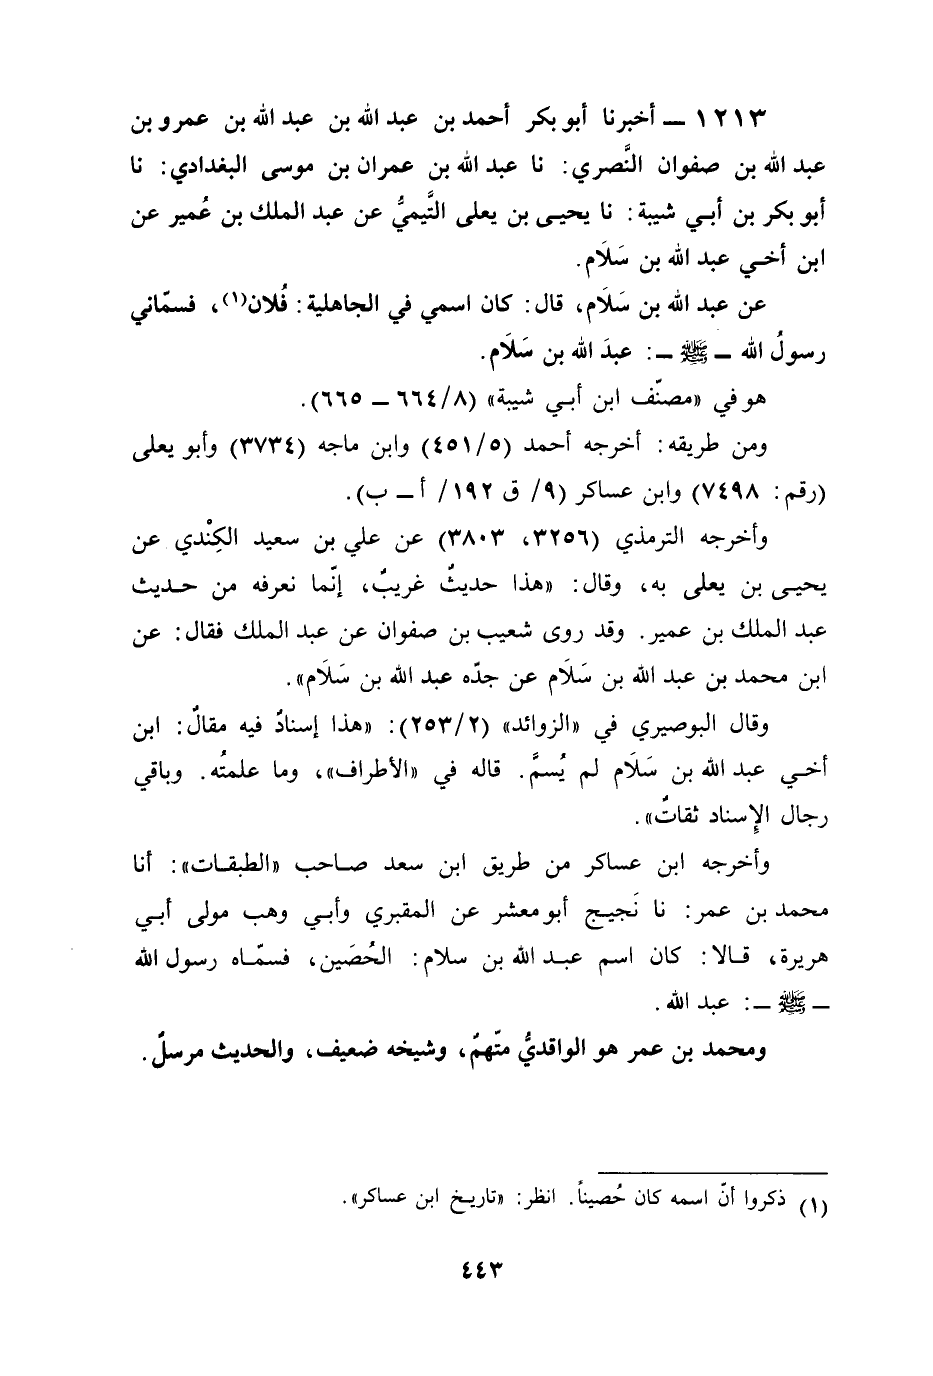 ١٢١٣ ــ أخبرنا أبو بكر أحمد بن عبد الله بن عبد الله بن عمرو بن
عبد الله بن صفوان النَّصري: نا عبد الله بن عمران بن موسى البغدادي: نا
أبو بكر بن أبـي شيبة: نا يحيـى بن يعلى التَّيميُّ عن عبد الملك بن عُمير عن
ابن أخـي عبد الله بن سَلَام.
عن عبد الله بن سَلَام، قال: كان اسمي في الجاهلية: فُلان(١)، فسمّاني
رسولُ الله ــ ﷺ ــ: عبدَ الله بن سَلَام.
هو في «مصنّف ابن أبـي شيبة» (٦٦٤/٨ ــ ٦٦٥).
ومن طريقه: أخرجه أحمد (٤٥١/٥) وابن ماجه (٣٧٣٤) وأبو يعلى
(رقم: ٧٤٩٨) وابن عساكر (٩/ ق ١٩٢/ أ ــ ب).
وأخرجه الترمذي (٣٢٥٦، ٣٨٠٣) عن علي بن سعيد الكِنْدي عن
يحيـى بن يعلى به، وقال: «هذا حديثٌ غريبٌ، إنّما نعرفه من حـديث
عبد الملك بن عمير. وقد روى شعيب بن صفوان عن عبد الملك فقال: عن
ابن محمد بن عبد الله بن سَلَام عن جدّه عبد الله بن سَلَام».
وقال البوصيري في «الزوائد» (٢٥٣/٢): «هذا إسنادٌ فيه مقالٌ: ابن
أخـي عبد الله بن سَلَام لم يُسمَّ. قاله في «الأطراف»، وما علمتُه. وباقي
رجال الإِسناد ثقاتٌ».
وأخرجه ابن عساكر من طريق ابن سعد صـاحب «الطبقـات»: أنا
محمد بن عمر: نا نَجيـح أبو معشر عن المقبري وأبـي وهب مولى أبـي
هريرة، قـالا: كان اسم عبـد الله بن سلام: الحُصَين، فسمّـاه رسول الله
ــ ﷺ ــ: عبد الله.
ومحمد بن عمر هو الواقديُّ متّهمٌ، وشيخه ضعيف، والحديث مرسلٌ.
(١) ذكروا أنّ اسمه كان حُصيناً. انظر: «تاريـخ ابن عساكر».
٤٤٣